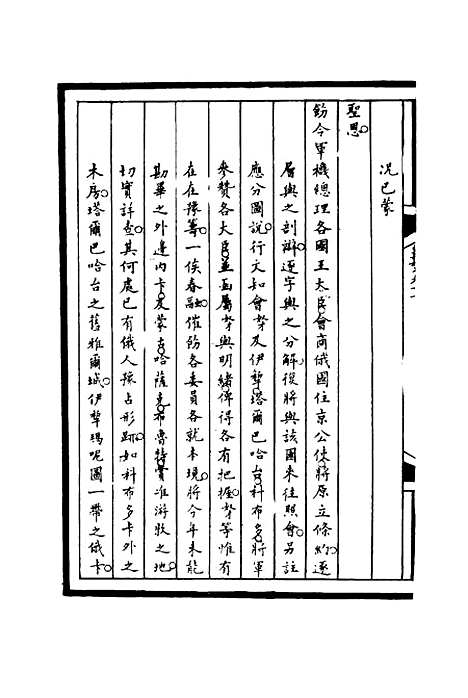 況已蒙
聖恩。
飭令軍機總理各國王大臣會商俄國住京公使將原立條約。逐
層與之剖辯。逐字與之分解。復將與該國來往照會。另註
應分圖說。行文知會孥及伊犂。塔爾巴哈台。科布多。將軍
參贊各大臣。並函屬孥與明緒。俾得各有把握。孥等惟有
在在豫籌。一俟春融。催飭各委員各就本境。將今年未能
勘畢之外邊內卡。及蒙古。哈薩克。布魯特。實准游牧之地。
切實詳查。其何處已有俄人豫占形跡。如科布多卡外之
木房。塔爾巴哈台之舊雅爾城。伊犂瑪呢圖一帶之俄卡。